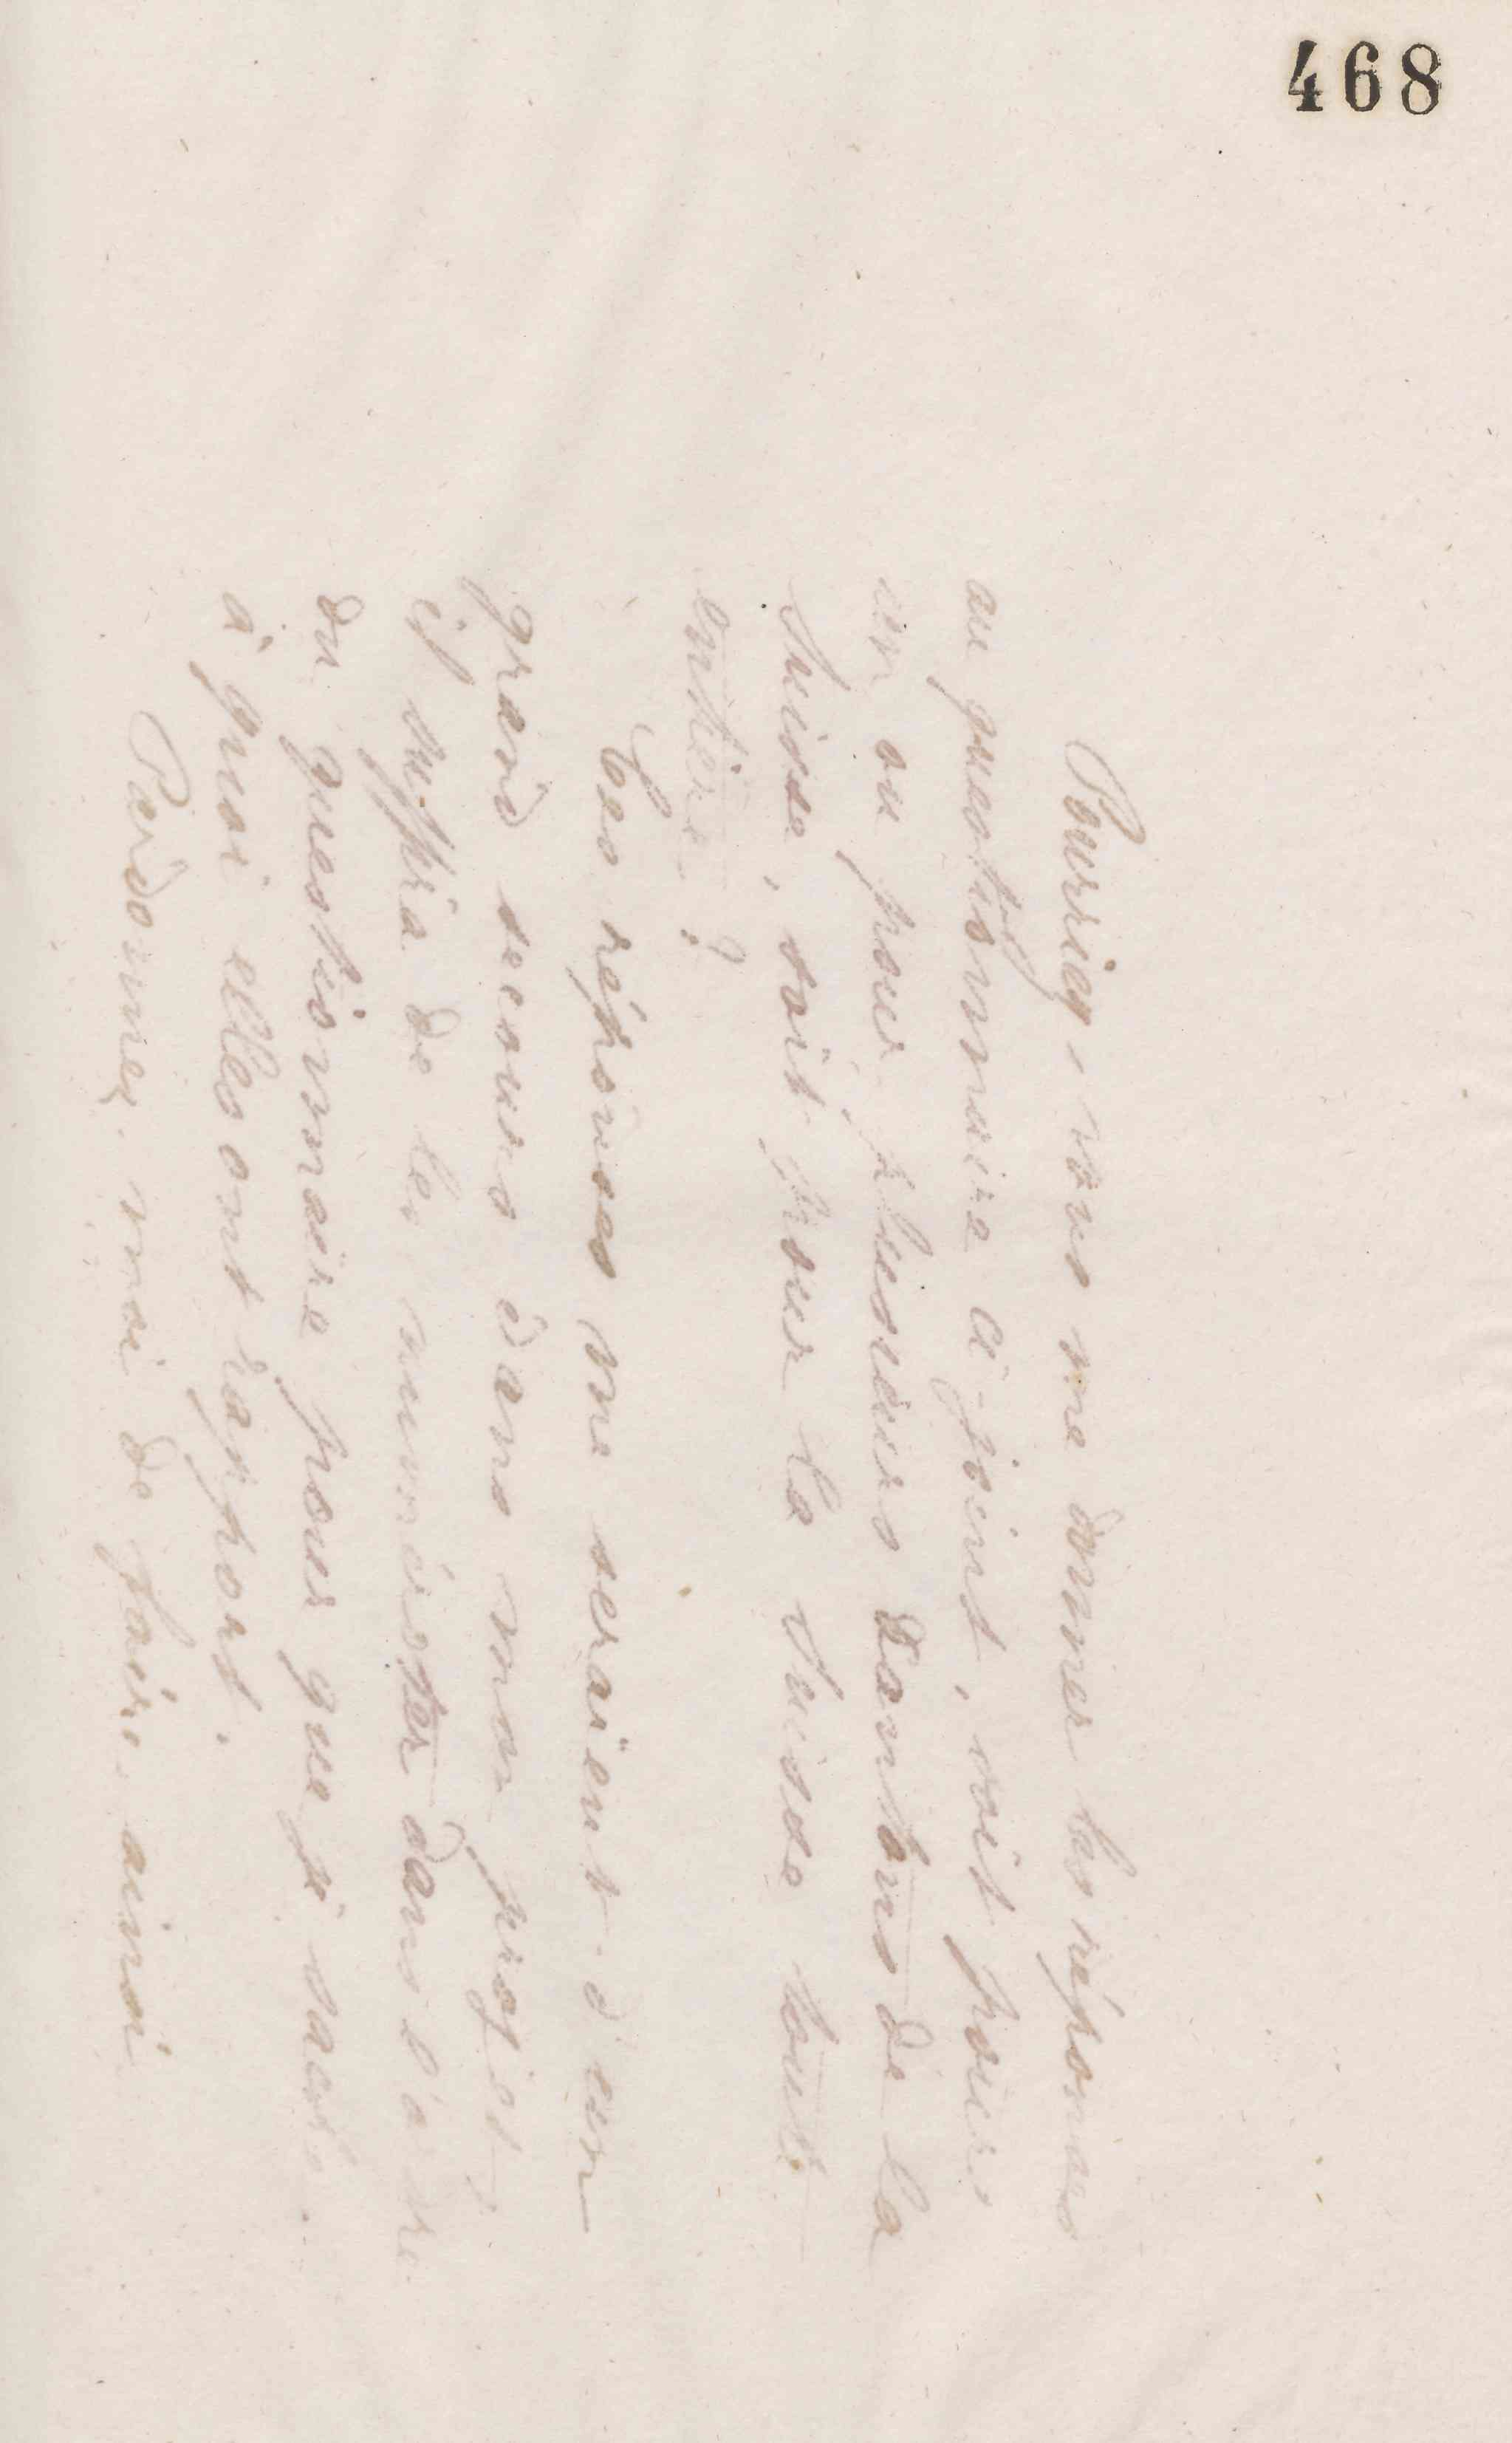 468
Pourriez-vous me donner les réponses
au questionnaire ci-joint, soit pour
un ou pour plusieurs Cantons de la
Suisse, soit pour la Suisse toute
entière?
Ces réponses me seraient d'un
grand secours dans mon projet
il suffira de les numéroter dans l'ordre
du questionnaire pour que je sache
à quoi elles ont rapport.
Pardonnez-moi de faire ainsi